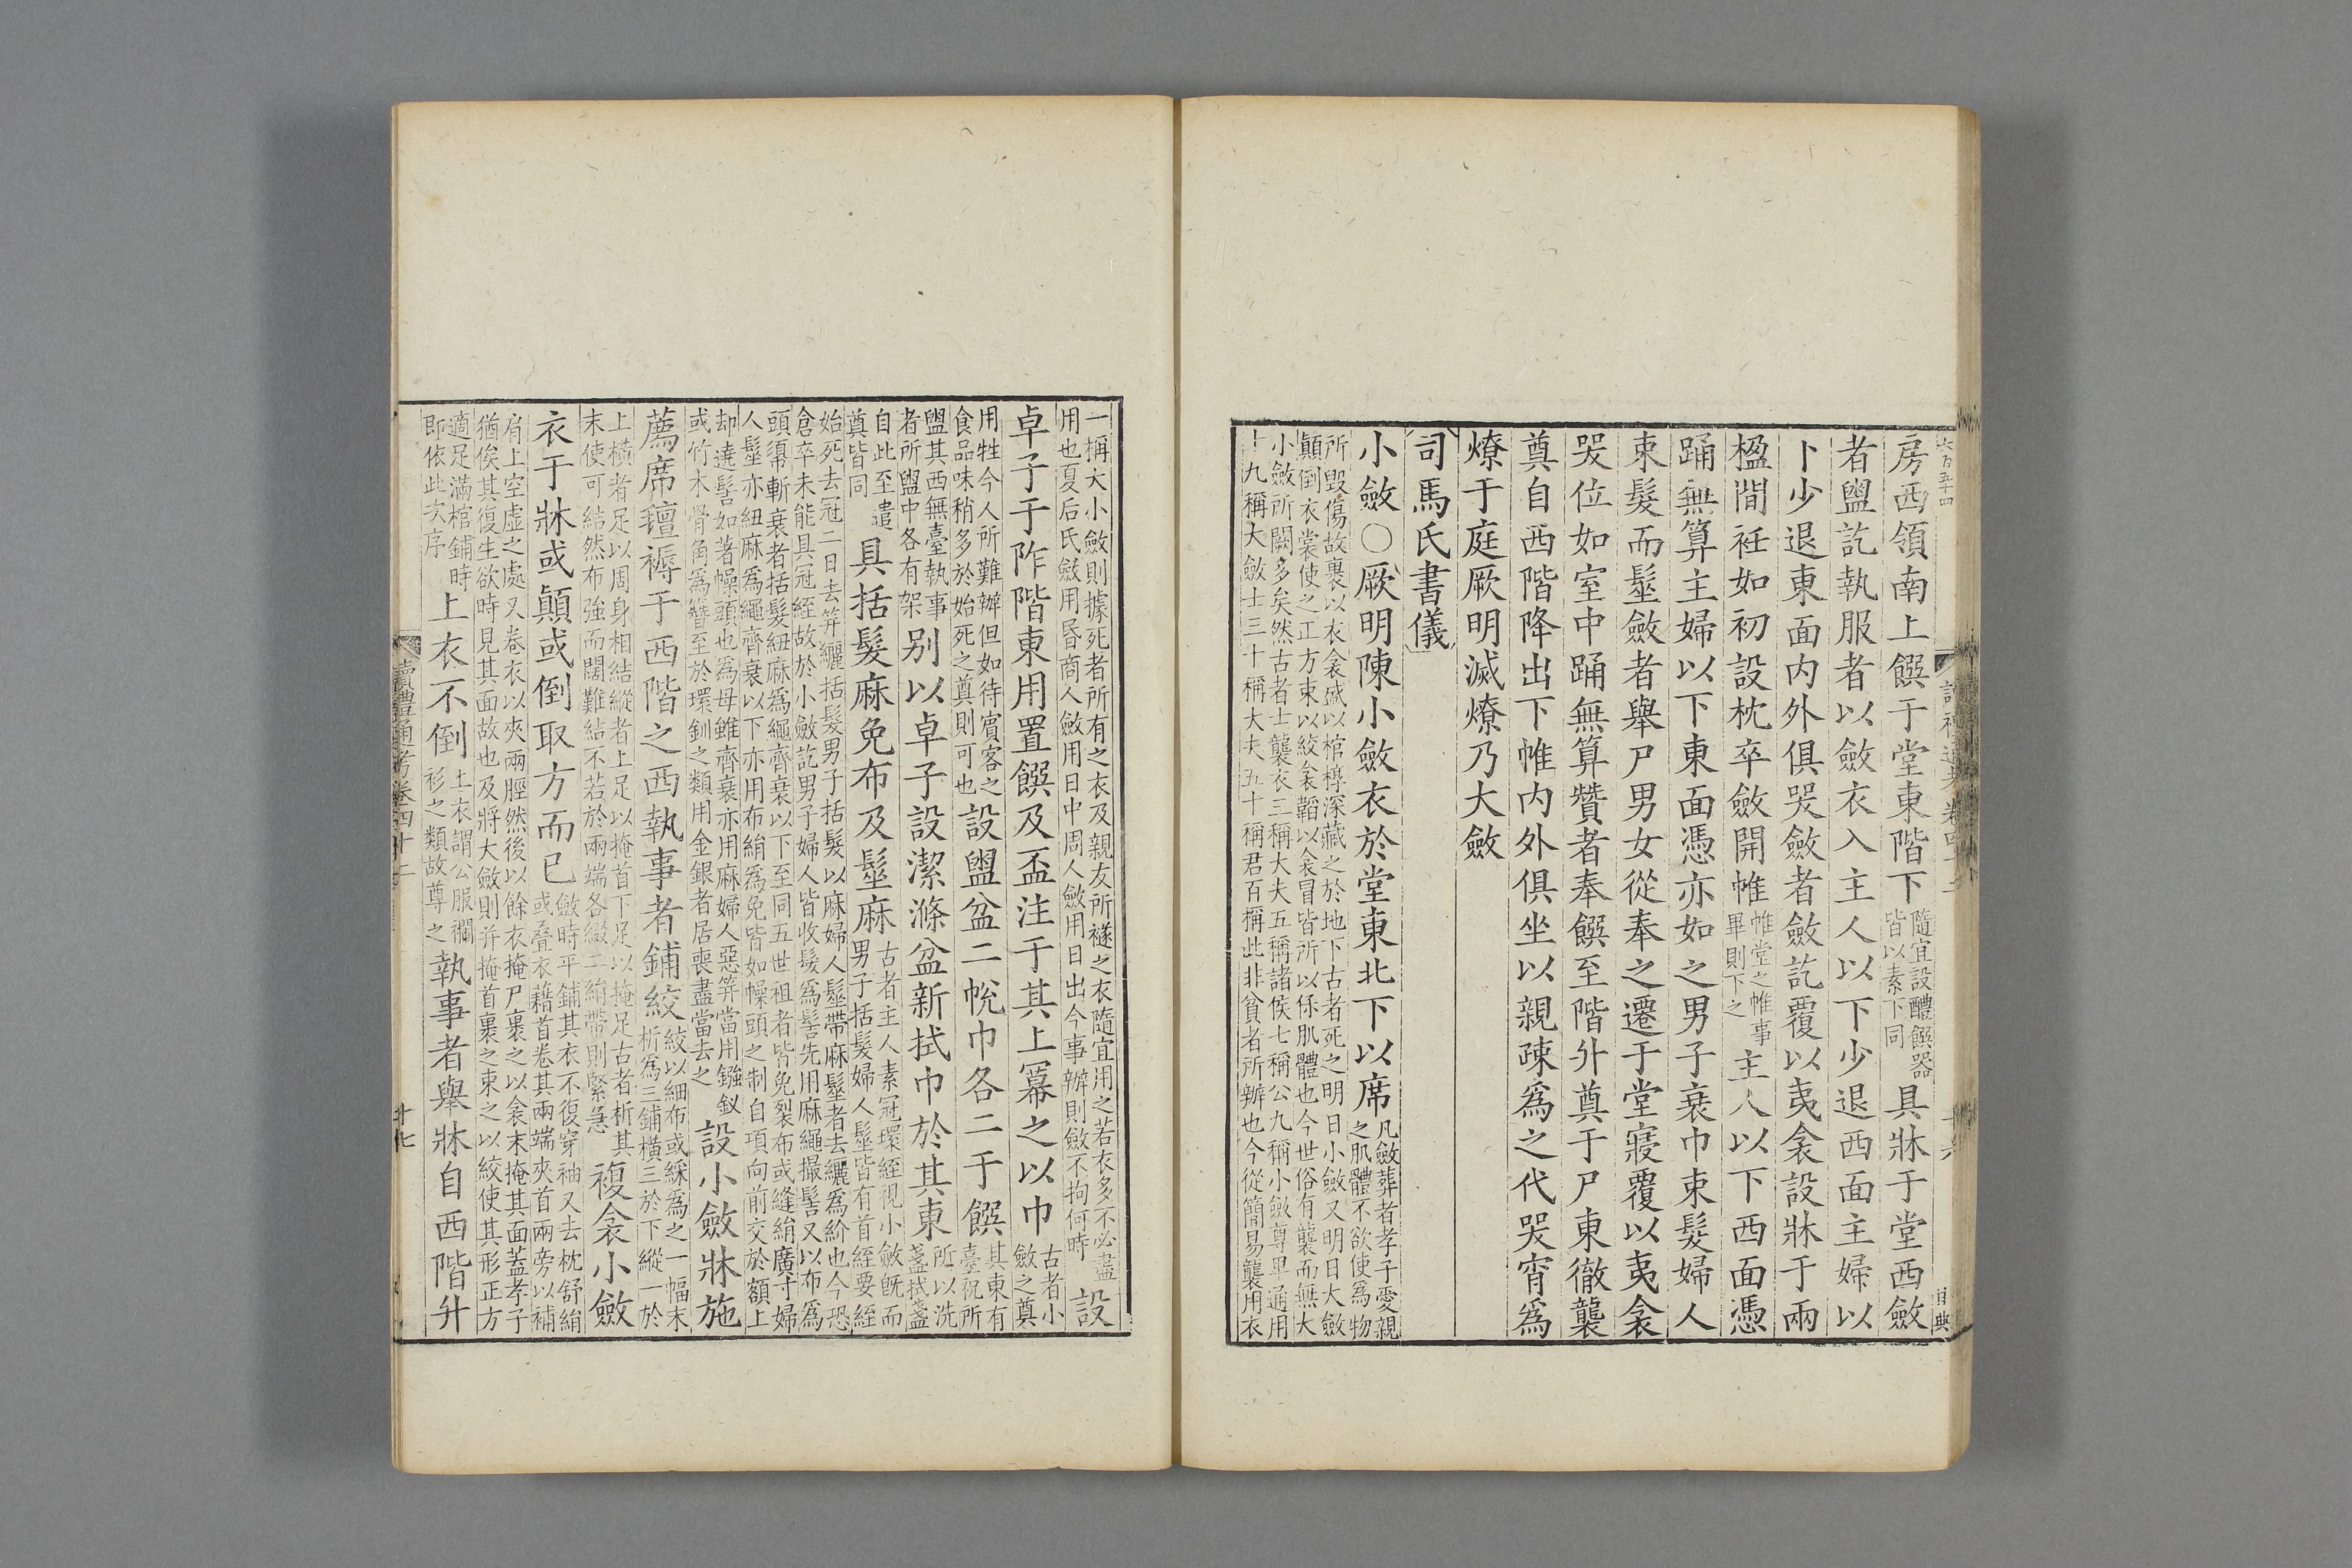 六百五十四
房西領南上饌于堂東階下隨宜設醴饌器皆以素下同具牀于堂西斂
者盥訖執服者以斂衣入主人以下少退西面主婦以
下少退東面内外俱哭斂者斂訖覆以夷衾設牀于兩
楹間衽如初設枕卒斂開帷帷堂之帷事畢則下之主人以下西面憑
踊無算主婦以下東面憑亦如之男子衰巾束髮婦人
束髮而髽斂者舉尸男女從奉之遷于堂寢覆以夷衾
哭位如室中踊無算贊者奉饌至階升奠于尸東徹襲
奠自西階降出下帷内外俱坐以親疎爲之代哭宵爲
燎于庭厥明滅燎乃大斂
司馬氏書儀
小斂〇厥明陳小斂衣於堂東北下以席凡斂葬者孝子愛親之肌體不欲使爲物
所毀傷故裹以衣衾盛以棺槨深藏之於地下古者死之明日小斂又明日大斂
顛倒衣裳使之正方束以絞衾韜以衾冒皆所以保肌體也今世俗有襲而無大
小斂所闕多矣然古者士襲衣三稱大夫五稱諸侯七稱公九稱小斂尊卑通用
十九稱大斂士三十稱大夫五十稱君百稱此非貧者所辦也今從簡易襲用衣
一稱大小斂則據死者所有之衣及親友所襚之衣隨宜用之若衣多不必盡
用也夏后氏斂用昏商人斂用日中周人斂用日出今事辦則斂不拘何時設
卓子于阼階東用置饌及盃注于其上冪之以巾古者小斂之奠
用牲今人所難辦但如待賓客之食品味稍多於始死之奠則可也設盥盆二帨巾各二于饌其東有臺祝所
盥其西無臺執事者所盥中各有架别以卓子設潔滌盆新拭巾於其東所以洗盞拭盞
自此至遣奠皆同具括髮麻免布及髽麻古者主人素冠環絰視小斂既而男子括髮婦人髽皆有首絰要絰
始死去冠二日去筓纚括髮男子括髮以麻婦人髽帶麻髽者去纚爲紒也今恐
倉卒未能具冠絰故於小斂訖男子婦人皆收髮爲髻先用麻繩撮髻又以布爲
頭𢄼斬衰者括髮紐麻爲繩齊衰以下至同五世祖者皆免裂布或縫絹廣寸婦
人髽亦紐麻爲繩齊衰以下亦用布絹爲免皆如幧頭之制自項向前交於額上
却遶髻如著幧頭也爲母雖齊衰亦用麻婦人惡筓當用鏹釵
或竹木骨角爲簪至於環釧之類用金銀者居喪盡當去之設小斂牀施
薦席氊褥于西階之西執事者鋪絞絞以細布或綵爲之一幅末析爲三鋪橫三於下縱一於
上橫者足以周身相結縱者上足以掩首下足以掩足古者析其
末使可結然布強而闊難結不若於兩端各綴二絹帶則緊急複衾小斂
衣于牀或顛或倒取方而已斂時平鋪其衣不復穿袖又去枕舒絹或疊衣藉首卷其兩端夾首兩旁以補
肩上空虛之處又卷衣以夾兩脛然後以餘衣掩尸裹之以衾末掩其面蓋孝子
猶俟其復生欲時見其面故也及將大斂則并掩首裹之束之以絞使其形正方
適足滿棺鋪時即依此次序上衣不倒上衣謂公服襴衫之類故尊之執事者舉牀自西階升
讀禮通考卷四十二
廿七